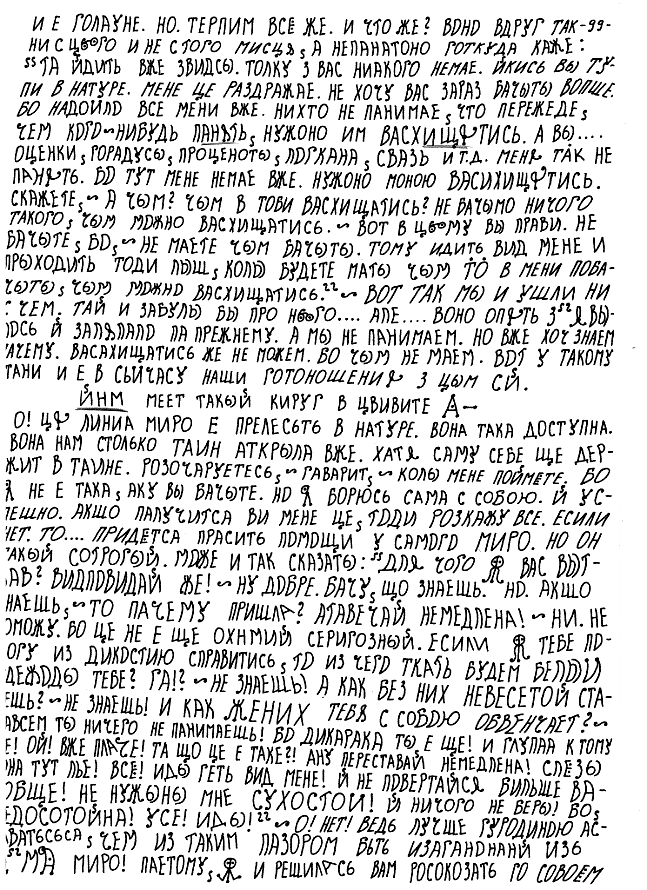 И Е ГОЛАУНЕ. НО. ТЕРПИМ ВСЁ ЖЕ. И ЧТО ЖЕ? ВОНО ВДРУГ ТАК-ЭЭ-
НИ С ЦЬОГО И НЕ С ТОГО МИСЦЯ, А НЕПАНАТОНО ГОТКУДА КАЖЕ:
"ТА ЙДИТЬ ВЖЕ ЗВИДСЫ. ТОЛКУ З ВАС НИАКОГО НЕМАЕ. ЙКИСЬ ВЫ ТУ-
ПИ В НАТУРЕ. МЕНЕ ЦЕ РАЗДРАЖАЕ. НЕ ХОЧУ ВАС ЗАРАЗ БАЧЫТЫ ВОПШЕ.
БО НАДОЙЛО ВСЕ МЕНИ ВЖЕ. НИХТО НЕ ПАНИМАЕ, ЧТО ПЕРЕЖЕДЕ,
ЧЕМ КОГО-НИБУДЬ ПАНЯТЬ, НУЖОНО ИМ ВАСХИЩЯТИСЬ. А ВЫ....
ОЦЕНКИ, ГОРАДУСЫ, ПРОЦЕНОТЫ, ЛОГКАНА, СВАЗЬ И Т.Д. МЕНЯ ТАК НЕ
ПАНЯТЬ. БО ТУТ МЕНЕ НЕМАЕ ВЖЕ. НУЖОНО МОНОЮ ВАСИХИЩЯТИСЬ.
СКАЖЕТЕ,~ А ЧЫМ? ЧЫМ В ТОБИ ВАСХИЩАТИСЬ? НЕ БАЧЫМО НИЧОГО
ТАКОГО, ЧЫМ МОЖНО ВАСХИЩАТИСЬ.~ ВОТ В ЦЬОМУ ВЫ ПРАВИ. НЕ
БАЧЫТЕ, БО,~ НЕ МАЕТЕ ЧЫМ БАЧЫТЫ. ТОМУ ИДИТЬ ВИД МЕНЕ И
ПРЫХОДИТЬ ТОДИ ЛЫШ, КОЛЫ БУДЕТЕ МАТЫ ЧЫМ ТО В МЕНИ ПОБА-
ЧЫТЫ, ЧЫМ МОЖНО ВАСХИЩАТИСЬ."~ ВОТ ТАК МЫ И УШЛИ НИ
С ЧЕМ. ТАЙ И ЗАБУЛЫ БЫ ПРО НЬОГО.... АЛЕ.... ВОНО ОПЯТЬ
ЛОСЬ Й ЗАПЫЛАЛО ПА ПРЕЖНЕМУ. А МЫ НЕ ПАНИМАЕМ. НО ВЖЕ ХОЧ ЗНАЕМ
ПАЧЕМУ. ВАСАХИЩАТИСЬ ЖЕ НЕ МОЖЕМ. БО ЧЫМ НЕ МАЕМ. ВОТ У ТАКОМУ
СТАНИ И Е В СЬИЧАСУ НАШИ ГОТОНОШЕНИЯ З ЦЫМ СЙ.
ЙНМ МЕЕТ ТАКЫЙ КИРУГ В ЦВИВИТЕ А—
О! ЦЯ ЛИНИА МИРО Е ПРЕЛЕСТЬ В НАТУРЕ. ВОНА ТАКА ДОСТУПНА.
ВОНА НАМ СТОЛЬКО ТАИН АТКРЫЛА ВЖЕ. ХАТЯ САМУ СЕБЕ ЩЕ ДЕР-
ЖИТ В ТАИНЕ. РОЗОЧАРУЕТЕСЬ,~ ГАВАРИТ,~ КОЛЫ МЕНЕ ПОЙМЕТЕ. БО
Я НЕ Е ТАКА, АКУ ВЫ БАЧЫТЕ. НО Я БОРЮСЬ САМА С СОБОЮ. Й УС-
ПЕШНО. АКШО ПАЛУЧИТСА ВИ МЕНЕ ЦЕ, ТОДИ РОЗКАЖУ ВСЕ. ЕСИЛИ
НЕТ. ТО.... ПРИДЕТСА ПРАСИТЬ ПОМОЩИ У САМОГО МИРО. НО ОН
ТАКЫЙ СОТРОГЫЙ. МОЖЕ И ТАК СКАЗАТЫ: "ДЛЯ ЧОГО Я ВАС ВЫТ-
КАВ? ВИДПОВИДАЙ ЖЕ!~ НУ ДОБРЕ. БАЧУ, ЩО ЗНАЕШЬ. НО. АКШО
ЗНАЕШЬ,~ ТО ПАЧЕМУ ПРИШЛА? АТАВЕЧАЙ НЕМЕДЛЕНА!~ НИ. НЕ
ПОМОЖУ. БО ЦЕ НЕ Е ЩЕ ОХНМИЙ СЕРИГОЗНЫЙ. ЕСИЛИ Я ТЕБЕ ПО-
МОГУ ИЗ ДИКОСТИЮ СПРАВИТИСЬ, ТО ИЗ ЧЕГО ТКАТЬ БУДЕМ БЕЛЫЙ
ОДЕЖОДЫ ТЕБЕ? ГА!?~ НЕ ЗНАЕШЬ! А КАК БЕЗ НИХ НЕВЕСЕТОЙ СТА-
НЕШЬ?~ НЕ ЗНАЕШЬ! И КАК ЖЕНИХ ТЕБЯ С СОБОЮ ОБВЕНЧАЕТ?~
САВСЕМ ТЫ НИЧЕГО НЕ ПАНИМАЕШЬ! БО ДИКАРАКА ТЫ Е ЩЕ! И ГЛУПАА К ТОМУ
ЖЕ! ОЙ! ВЖЕ ПЛАЧЕ! ТА ЩО ЦЕ Е ТАКЕ?! АНУ ПЕРЕСТАВАЙ НЕМЕДЛЕНА! СЛЕЗЫ
ОНА ТУТ ЛЬЕ! ВСЕ! ИДЫ ГЕТЬ ВИД МЕНЕ! Й НЕ ПОВЕРТАЙСЯ БИЛЬШЕ ВА-
ОБЩЕ! НЕ НУЖЫНЫ МНЕ СУХОСТОИ! Й НИЧОГО НЕ БЕРЫ! БО,
НЕДОСОТОЙНА! УСЕ! ИДЫ!"~ О! НЕТ! ВЕДЬ ЛУЧШЕ ГУРОДИНОЮ АС-
ТАВАТЬСЬСА, ЧЕМ ИЗ ТАКИМ ПАЗОРОМ БЫТЬ ИЗАГАНОНАНЙ ИЗ
МИРО! ПАЕТОМУ, Я И РЕШИЛАСЬ ВАМ РОСОКОЗАТЬ ГО СОВОЕМ